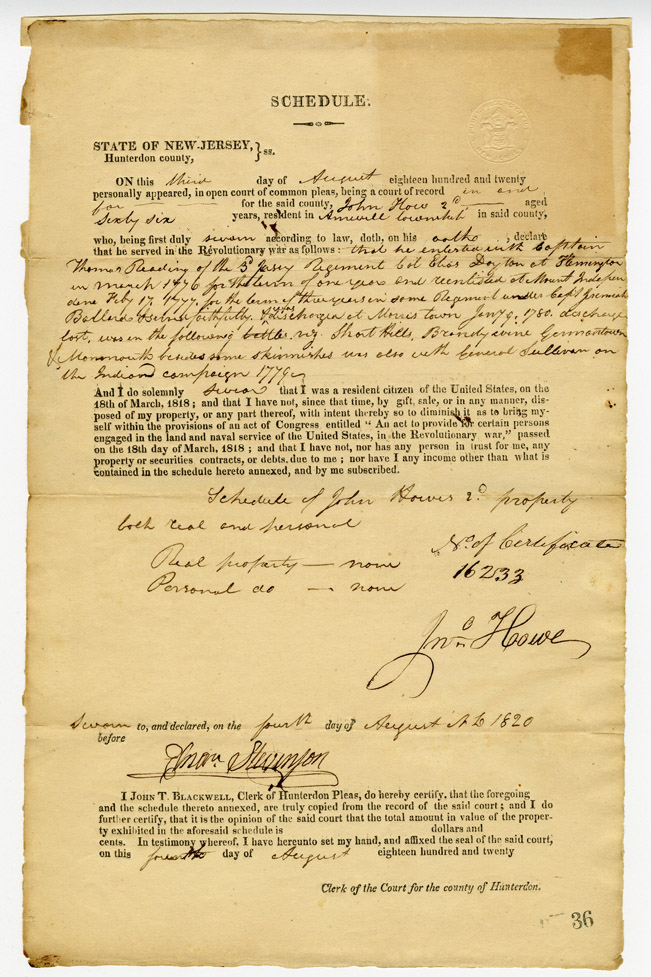 SCHEDULE.
STATE OF NEW-JERSEY, } ss.
Hunterdon county,
ON this third day of August eighteen hundred and twenty
personally appeared, in open court of common pleas, being a court of record in and
for for the said county, John How 2d aged
Sixty six years, resident in Amwell township in said county,
who, being first duly sworn according to law, doth, on his oathe, declare
that he served in the Revolutionary war as follows: that he enterted with Captain
Thomas Reading of the 3d Jersey Regiment Col Elias Dayton at Flemington
in march 1776 for the term of one year and reentisted at Mount Indepen
dene Feby 17. 1777. for the term of three years in same Regiment under Capt Jeremiah
Ballard served faithfully & was discharged at Morris town Jany 9. 1780. discharge
lost, was in the following battles. viz. Short Hills, Brandywine Germantown
& Monmouth besides some skirmishes was also with General Sullivan on
the Indian campaign 1779
And I do solemnly swear that I was a resident citizen of the United States, on the
18th of March, 1818; and that I have not, since that time, by gift, sale, or in any manner, dis-
posed of my property, or any part thereof, with intent thereby so to diminish it as to bring my-
self within the provisions of an act of Congress entitled "An act to provide for certain persons
engaged in the land and naval service of the United States, in the Revolutionary war," passed
on the 18th day of March, 1818; and that I have not, nor has any person in trust for me, any
property or securities contracts, or debts, due to me; nor have I any income other than what is
contained in the schedule hereto annexed, and by me subscribed.
Schedule of John Howes 2d property
both real and personal
Real property — none
No. of Certificate
Personal do — none
16233
Jno. Howe
Sworn to, and declared, on the fourth day of August AD 1820
before
Stevenson
I JOHN T. BLACKWELL, Clerk of Hunterdon Pleas, do hereby certify, that the foregoing
and the schedule thereto annexed, are truly copied from the record of the said court; and I do
further certify, that it is the opinion of the said court that the total amount in value of the proper-
ty exhibited in the aforesaid schedule is dollars and
cents. In testimony whereof, I have hereunto set my hand, and affixed the seal of the said court,
on this fourth day of August eighteen hundred and twenty
Clerk of the Court for the county of Hunterdon.
36